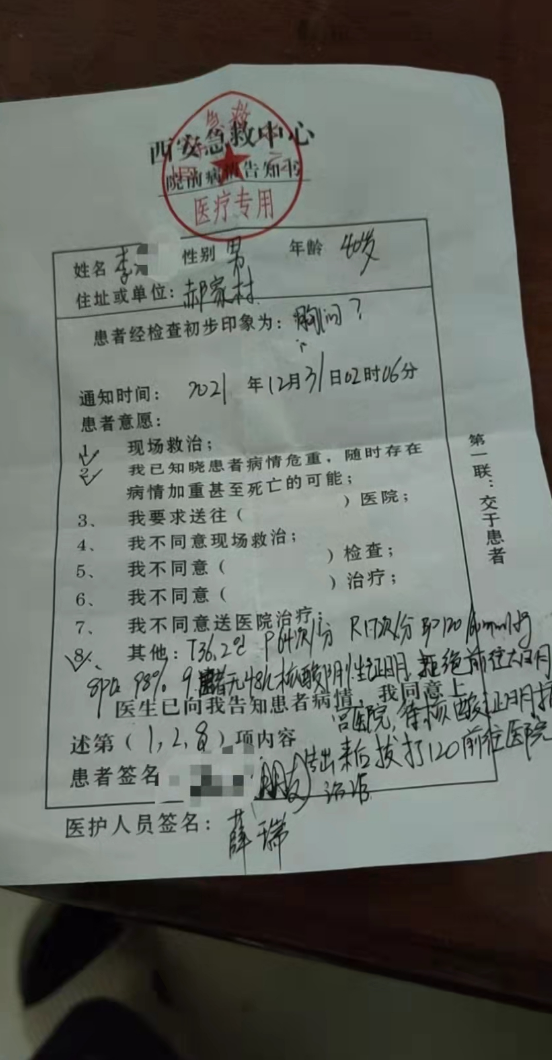 西安急救中心
院前病情告知书
医疗专用
姓名 李 性别 男 年龄 40岁
住址或单位：郝家村
患者经检查初步印象为：胸闷？
通知时间：2021年12月31日02时06分
患者意愿：
1 现场救治；
2 我已知晓患者病情危重，随时存在
病情加重甚至死亡的可能；
3、 我要求送往（ ）医院；
4、 我不同意现场救治；
5、 我不同意（ ）检查；
6、 我不同意（ ）治疗；
7、 我不同意送医院治疗；
8、 其他：T36.2℃ P64次/分 R17次/分 BP120/ mmHg
98% 患者无48h核酸阴性证明，拒绝前往大
医生已向我告知患者病情，我同意上
医院，待核酸证明
述第（1,2,8）项内容
出来后拨打120前往医院
患者签名 （朋友）
医护人员签名：薛瑞
第一联：交于患者